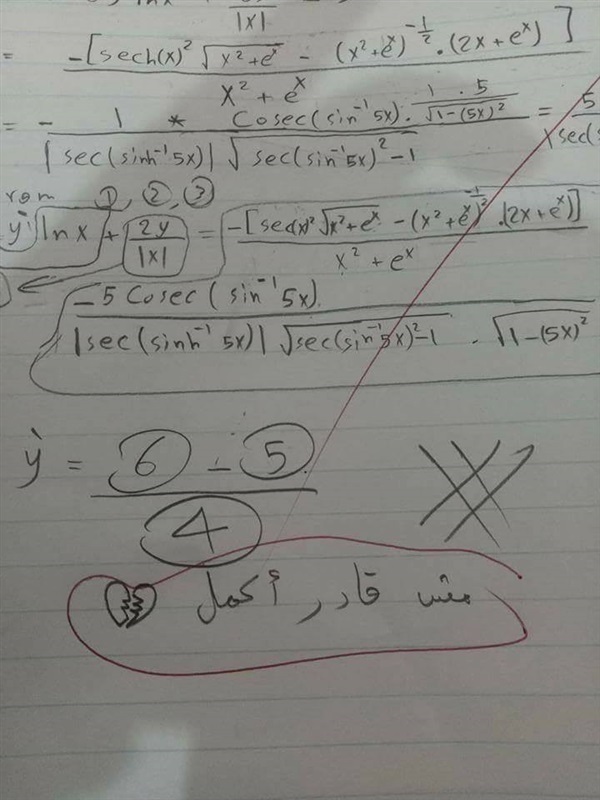 |x|
= -[sech(x)² √(x²+eˣ) - (x²+eˣ)^(-1/2) · (2x+eˣ)] / (x² + eˣ)
= - 1 / (|sec(sinh⁻¹5x)| √(sec(sin⁻¹5x)²-1)) * Cosec(sin⁻¹5x) · 1 · 5 / √(1-(5x)²) = 5
①, ②, ③
y' ln x + 2y/|x| = -[sec(x)² √(x²+eˣ) - (x²+eˣ)^(-1/2) · (2x+eˣ)] / (x² + eˣ)
-5 Cosec(sin⁻¹5x) / (|sec(sinh⁻¹5x)| √(sec(sin⁻¹5x)²-1) · √(1-(5x)²))
y' = (6 - 5) / 4
مش قادر أكمل 💔